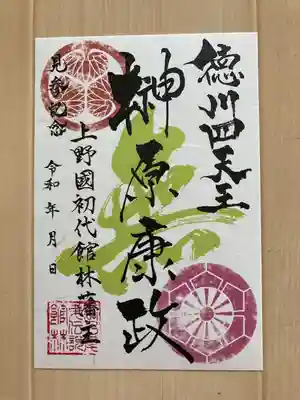 徳川四天王
榊原康政
上野國初代館林藩主
見参記念
令和 年 月 日